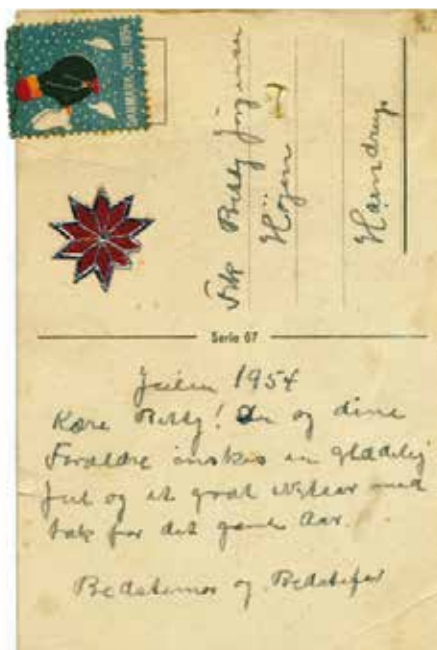 DANMARK JUL 1954
Frk Betty Jörgensen
Höjen
Serie 07
Julen 1954
Kære Betty! Du og dine
Forældre önskes en glædelig
Jul og et godt Nytaar med
tak for det gamle Aar.
Bedstemor og Bedstefar